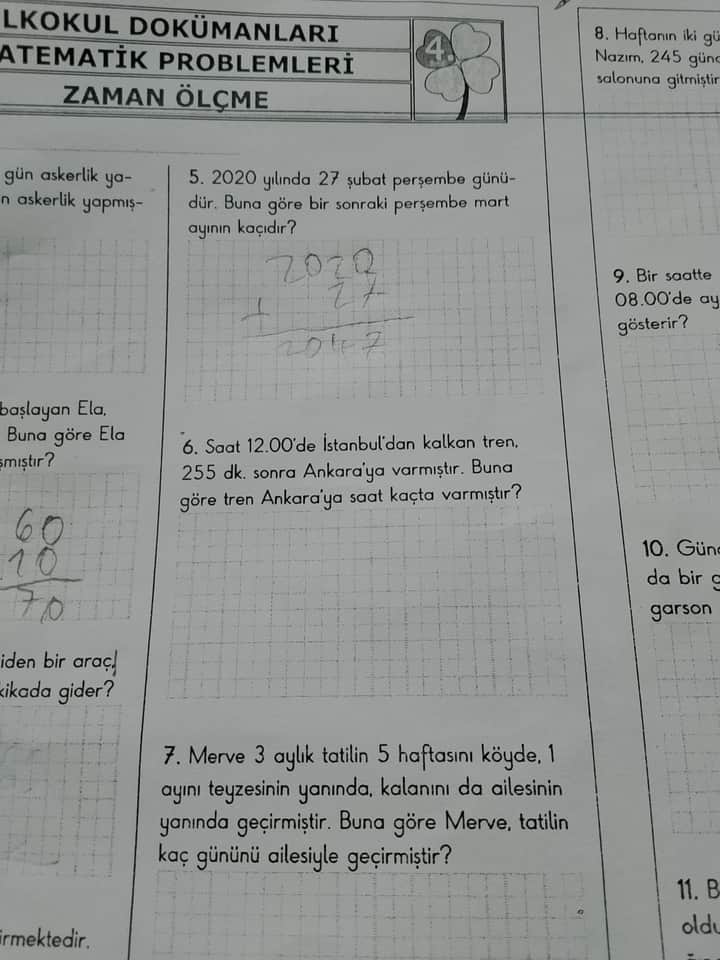 LKOKUL DOKÜMANLARI
ATEMATİK PROBLEMLERİ
ZAMAN ÖLÇME
4.
gün askerlik ya-
n askerlik yapmış-
başlayan Ela,
Buna göre Ela
şmıştır?
60
10
70
iden bir araç,
kikada gider?
irmektedir.
5. 2020 yılında 27 şubat perşembe günü-
dür. Buna göre bir sonraki perşembe mart
ayının kaçıdır?
2020
+ 27
2047
6. Saat 12.00'de İstanbul'dan kalkan tren,
255 dk. sonra Ankara'ya varmıştır. Buna
göre tren Ankara'ya saat kaçta varmıştır?
7. Merve 3 aylık tatilin 5 haftasını köyde, 1
ayını teyzesinin yanında, kalanını da ailesinin
yanında geçirmiştir. Buna göre Merve, tatilin
kaç gününü ailesiyle geçirmiştir?
8. Haftanın iki gü
Nazım, 245 günd
salonuna gitmiştir
9. Bir saatte
08.00'de ay
gösterir?
10. Günd
da bir g
garson
11. B
oldu